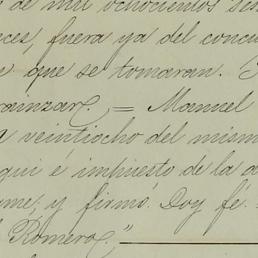 de mil ochocientos ses
ces, fuera ya del concu
que se tomaran.
ainzar, = Manuel
veintiocho del mism
qui é impuesto de la a
me; y firmó. Doy fé.
Romero,"